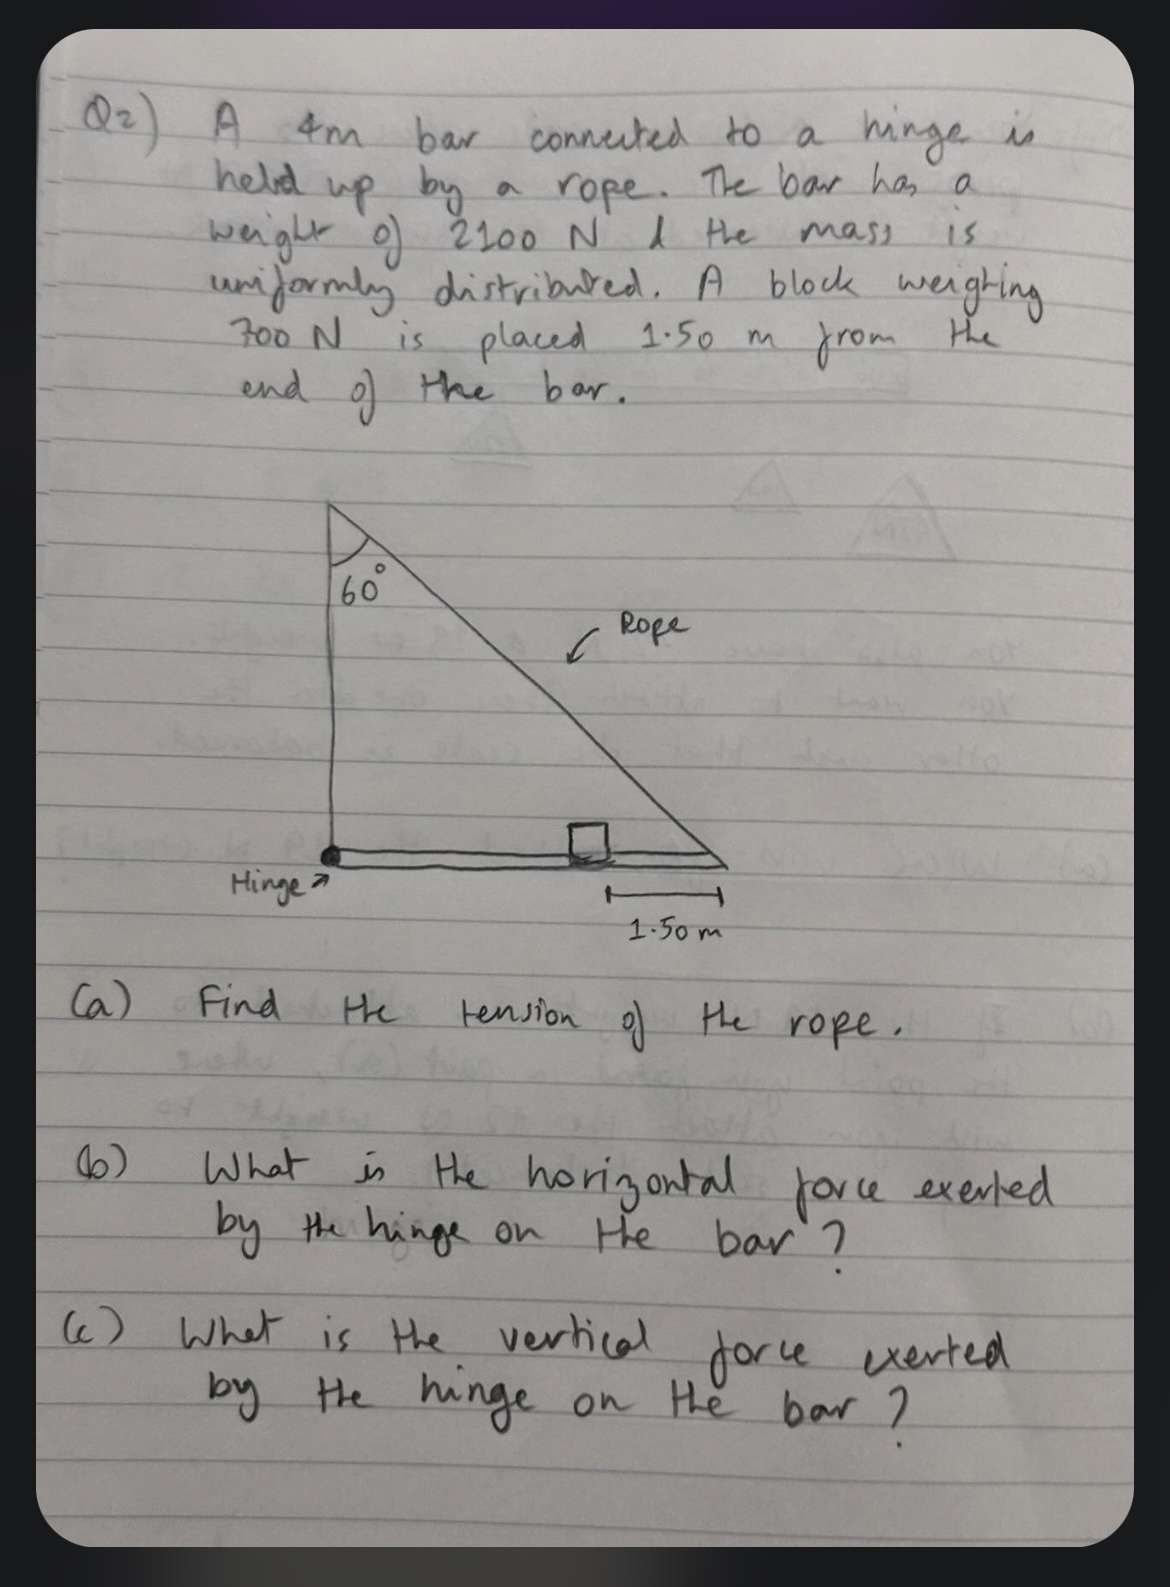 Q2) A 4m bar connected to a hinge is
held up by a rope. The bar has a
weight of 2100 N & the mass is
uniformly distributed. A block weighing
700 N is placed 1.50 m from the
end of the bar.
60°
Rope
Hinge
1.50 m
(a) Find the tension of the rope.
(b) What is the horizontal force exerted
by the hinge on the bar?
(c) What is the vertical force exerted
by the hinge on the bar?